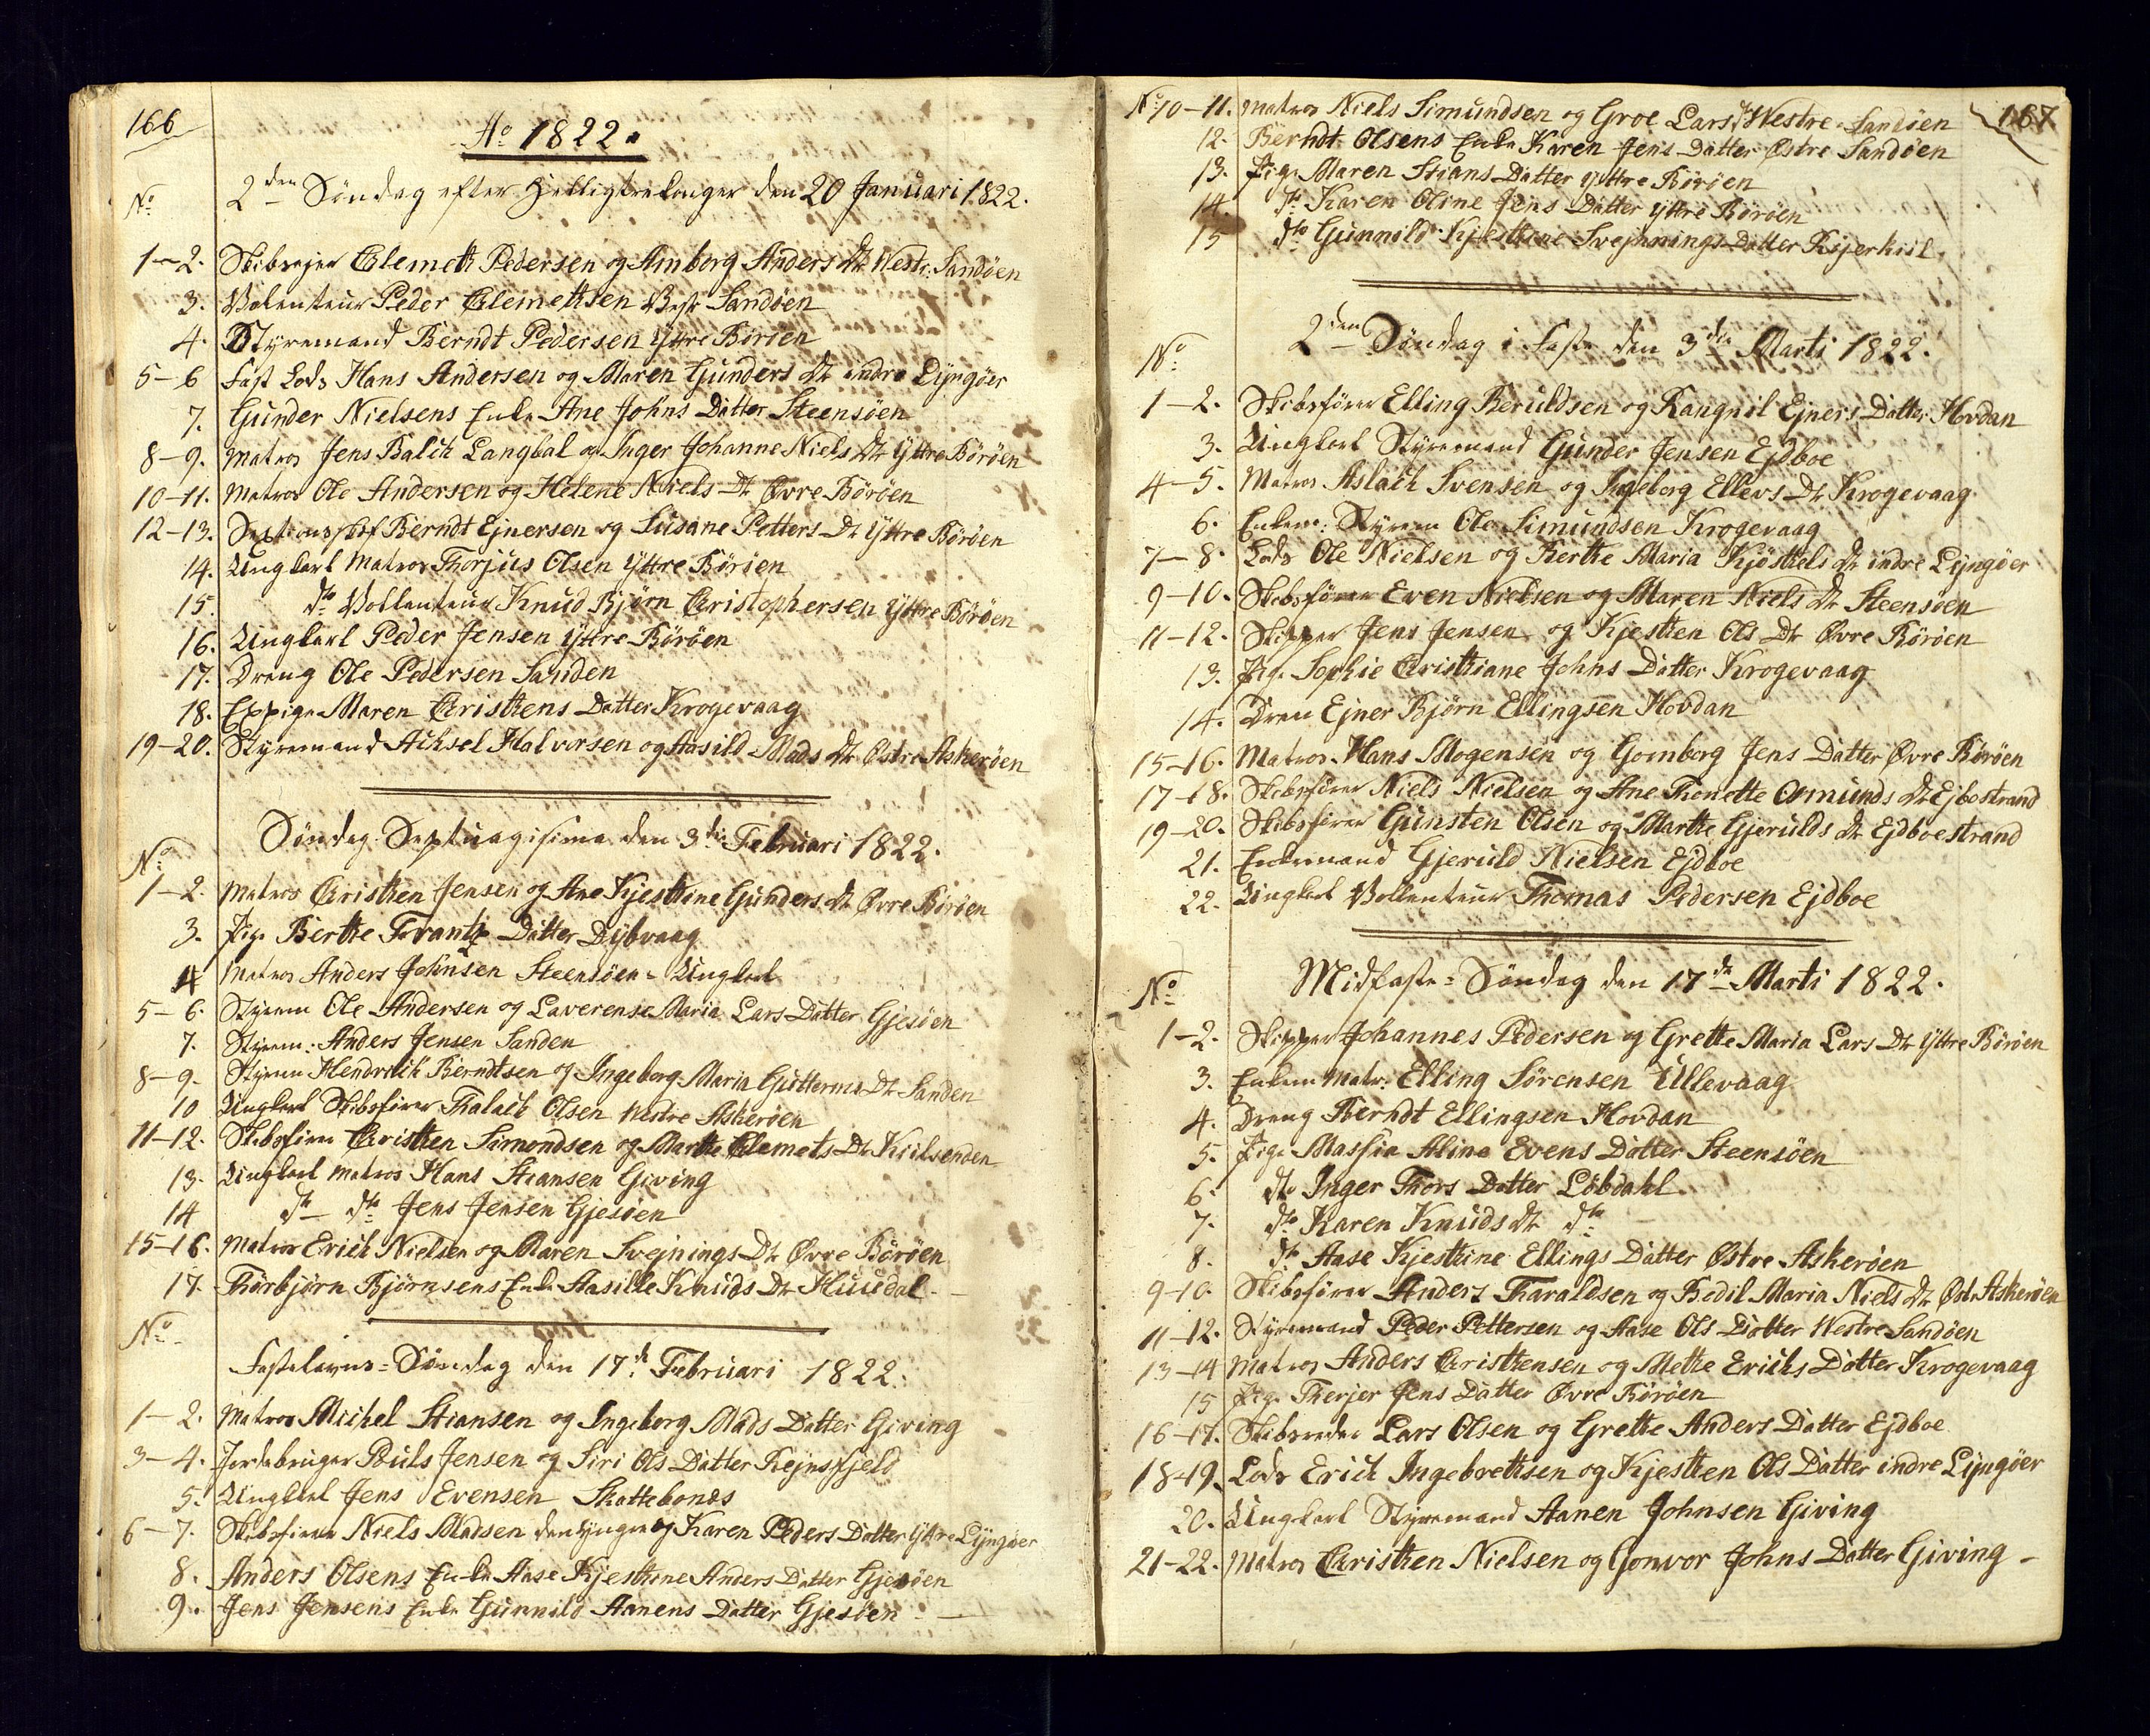 166
Ao 1822.
No 2den Søndag efter Helligtrekonger den 20 Januari 1822.
1-2. Skibsejer Clemeth Pedersen og Amborg Anders Dtr Westr: Sandøen
3. Volenteur Peder Clemethsen Vestr Sandøen
4. Styremand Berndt Pedersen Yttre Börøen
5-6 Fast Lods Hans Andersen og Maren Gunders Dtr indre Lyngøer
7. Gunder Nielsens Enke Ane Johns Datter Steensøen
8-9. Matros Jens Balch Langbal og Inger Johanne Niels Dtr Yttre Börøen
10-11. Matros Ole Andersen og Helene Niels Dtr Øvre Börøen
12-13. Berndt Ejnersen og Susane Petters Dr Yttre Börøen
14. Ungkarl Matros Thorjus Olsen Yttre Börøen
15. dto Vollenteur Knud Bjørn Christophersen Yttre Börøen
16. Ungkarl Peder Jensen Yttre Börøen
17. Dreng Ole Pedersen Sanden
18. Maren Christhens Datter Krogevaag
19-20. Styremand Achsel Halvorsen og Aasild Mads Dtr Østre Askerøen
Søndag Septuagisima den 3die Februari 1822.
No
1-2. Matros Christhen Jensen og Ane Kjesthine Gunders Dtr Øvre Börøen
3. Pige Berthe Frantz Datter Dybvaag
4 Matros Anders Johnsen Steensøen - Ungkarl
5-6. Styrem Ole Andersen og Laverense Maria Lars Datter Gjesøen
7. Styrem: Anders Jensen Sanden
8-9. Styrem Hendrich Berndtsen og Ingeborg Maria Guttorms Dtr Sanden
10 Ungkarl Skibsfører Thalach Olsen Westre Askerøen
11-12. Skibsfører Christhen Simondsen og Marthe Clemets Dtr Kiilsenden
13. Ungkarl Matros Hans Stiansen Giving
14 dto dto Jens Jensen Gjesøen
15-16. Matros Erich Nielsen og Maren Svejnings Dtr Øvre Börøen
17. Thorbjørn Bjørnsens Enke Aasille Knuds Dtr Huusdal
No
Fastelavns-Søndag den 17de Februari 1822.
1-2. Matros Michel Stiansen og Ingeborg Mads Datter Giving
3-4. Jordebruger Pouls Jensen og Siri Ols Datter Rejnsfjeld
5. Ungkarl Jens Evensen Skottebonds
6-7. Skibsfører Niels Madsen den yngre og Karen Peders Datter Yttre Lyngøer
8. Anders Olsens Enke Aase Kjesthine Anders Datter Gjesøen
9. Jens Jensens Enke Gunnild Aanens Datter Gjesøen
167
No 10-11. Matros Niels Simundsen og Groe Lars Westre Sandøen
12. Berndt Olsens Enke Karen Jens Datter Østre Sandøen
13. Pige Maren Stians Datter Yttre Börøen
14. dto Karen Oline Jens Datter Yttre Börøen
15 dto Gunnild Kjesthine Svejnnings Datter Kjerkiil
2den Søndag i Faste den 3die Marti 1822.
No
1-2. Skibsfører Elling Beruldsen og Rangnil Ejners Datter Hovdan
3. Ungkarl Styremand Gunder Jensen Ejdboe
4-5. Matros Aslach Svensen og Ingeborg Ellevs Dtr Krogevaag
6. Enkem: Styrem Ole Simundsen Krogevaag
7-8. Lods Ole Nielsen og Berthe Maria Kjösthels Dtr indre Lyngøer
9-10. Skibsfører Even Nielsen og Maren Niels Dtr Steensøen
11-12. Skipper Jens Jensen og Kjesthen Ols Dtr Øvre Börøen
13. Pige Sophie Christhiane Johns Datter Krogevaag
14. Dreng Ejner Bjørn Ellingsen Hovdan
15-16. Matros Hans Mogensen og Gomborg Jens Datter Øvre Börøen
17-18. Skibsfører Niels Nielsen og Ane Thonette Osmunds Dtr Ejbostrand
19-20. Skibsfører Gunsten Olsen og Marthe Gjerulds Dtr Ejdboestrand
21. Enkemand Gjeruld Nielsen Ejdboe
22. Ungkarl Vollenteur Thomas Pedersen Ejdboe
Midfaste-Søndag den 17de Marti 1822.
No
1-2. Skipper Johannes Pedersen og Grethe Maria Lars Dtr Yttre Börøen
3. Enkem Matr: Elling Sørensen Ullevaag
4. Dreng Berndt Ellingsen Hovdan
5. Pige Massia Aline Evens Datter Steensøen
6. dto Inger Thors Datter Løbdahl
7. dto Karen Knuds Dtr dto
8. dto Aase Kjesthine Ellings Datter Østre Askerøen
9-10. Skibsfører Anders Tharaldsen og Bodil Maria Niels Dtr Øst. Askerøen
11-12. Styremand Peder Pettersen og Aase Ols Datter Westre Sandøen
13-14 Matros Anders Christhensen og Methe Erichs Datter Krogevaag
15 Pige Therjer Jens Datter Øvre Börøen
16-17. Skibsreder Lars Olsen og Grethe Anders Datter Ejdboe
18-19. Lods Erich Ingebrethsen og Kjesthen Ols Datter indre Lyngøer
20. Ungkarl Styremand Aanen Johnsen Giving
21-22. Matros Christhen Nielsen og Gonvor Johns Datter Giving -